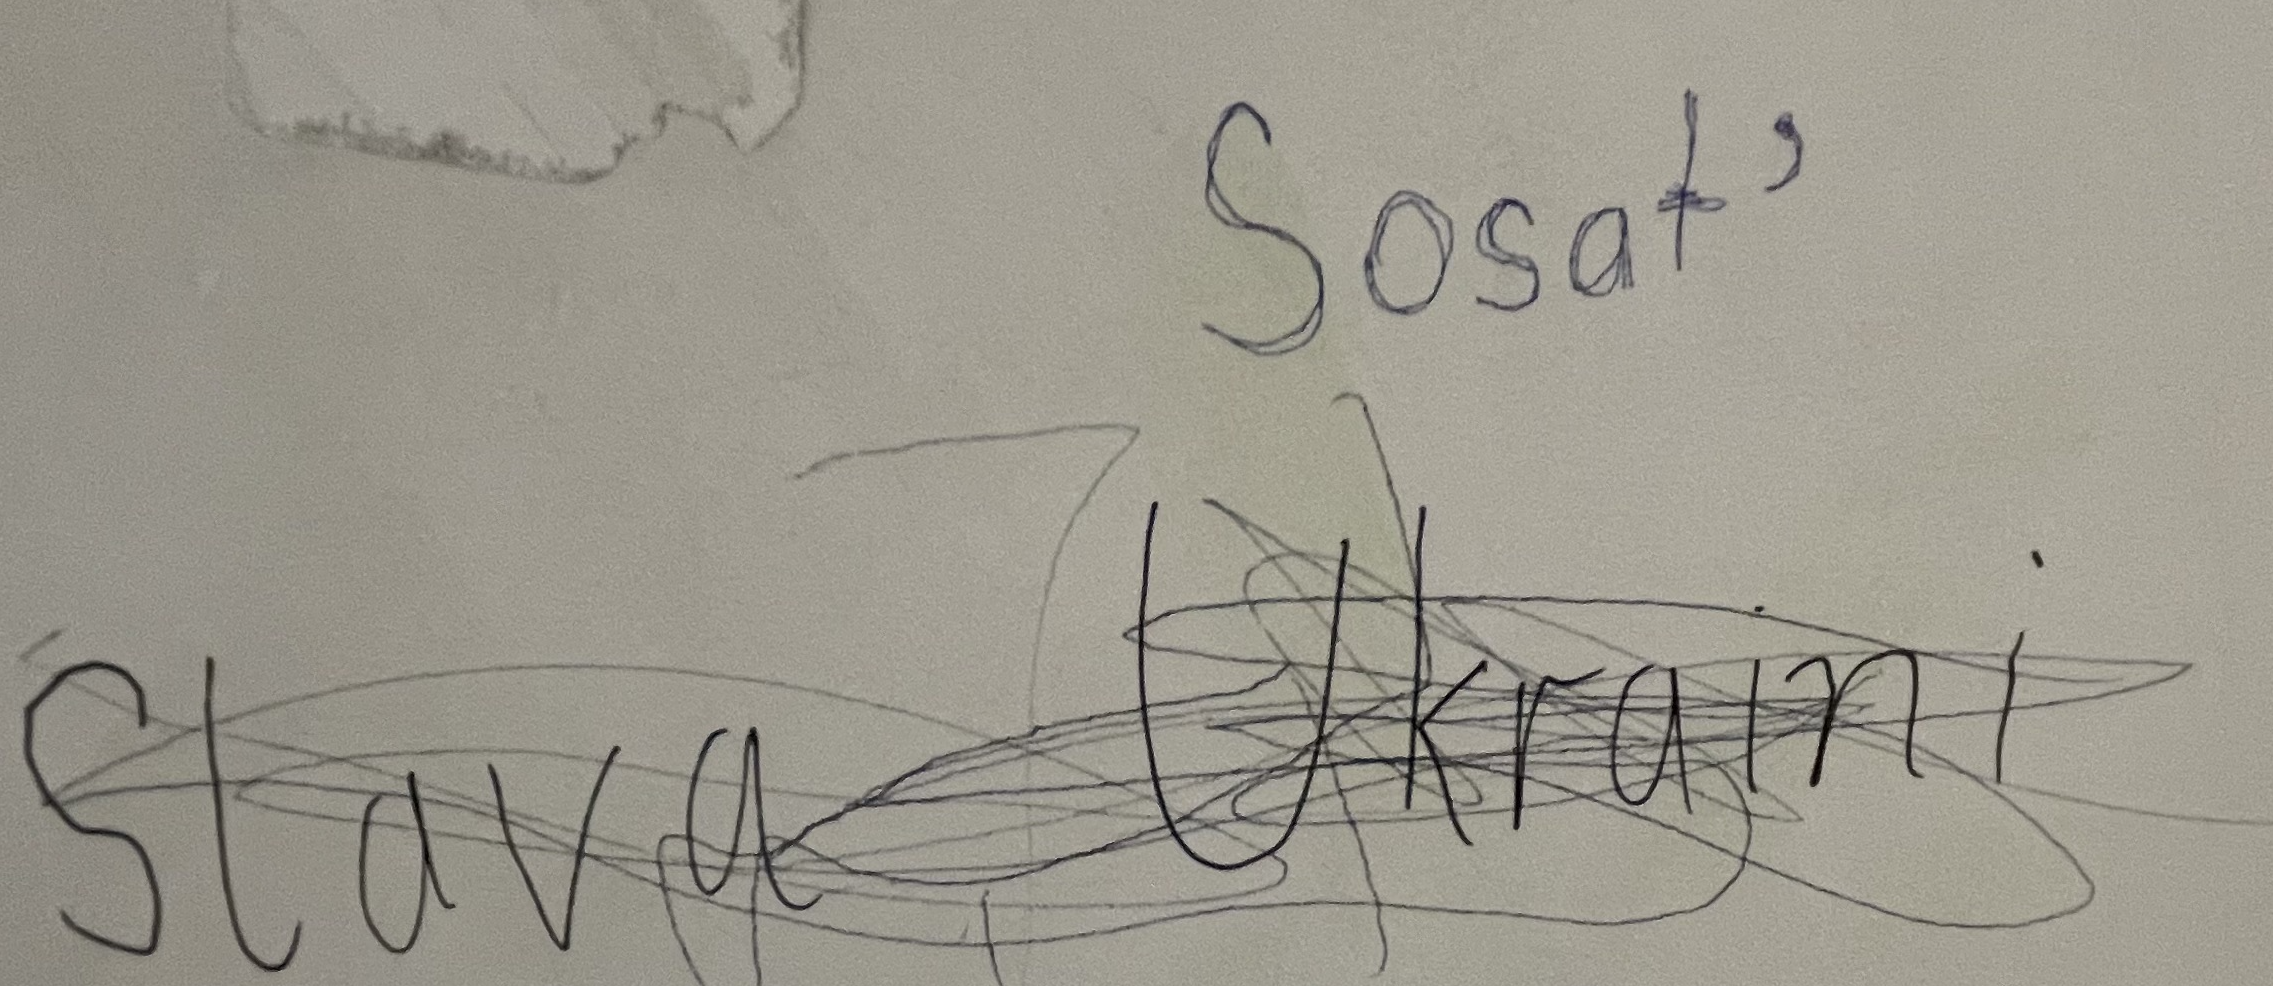 Sosat'
Slava Ukraini